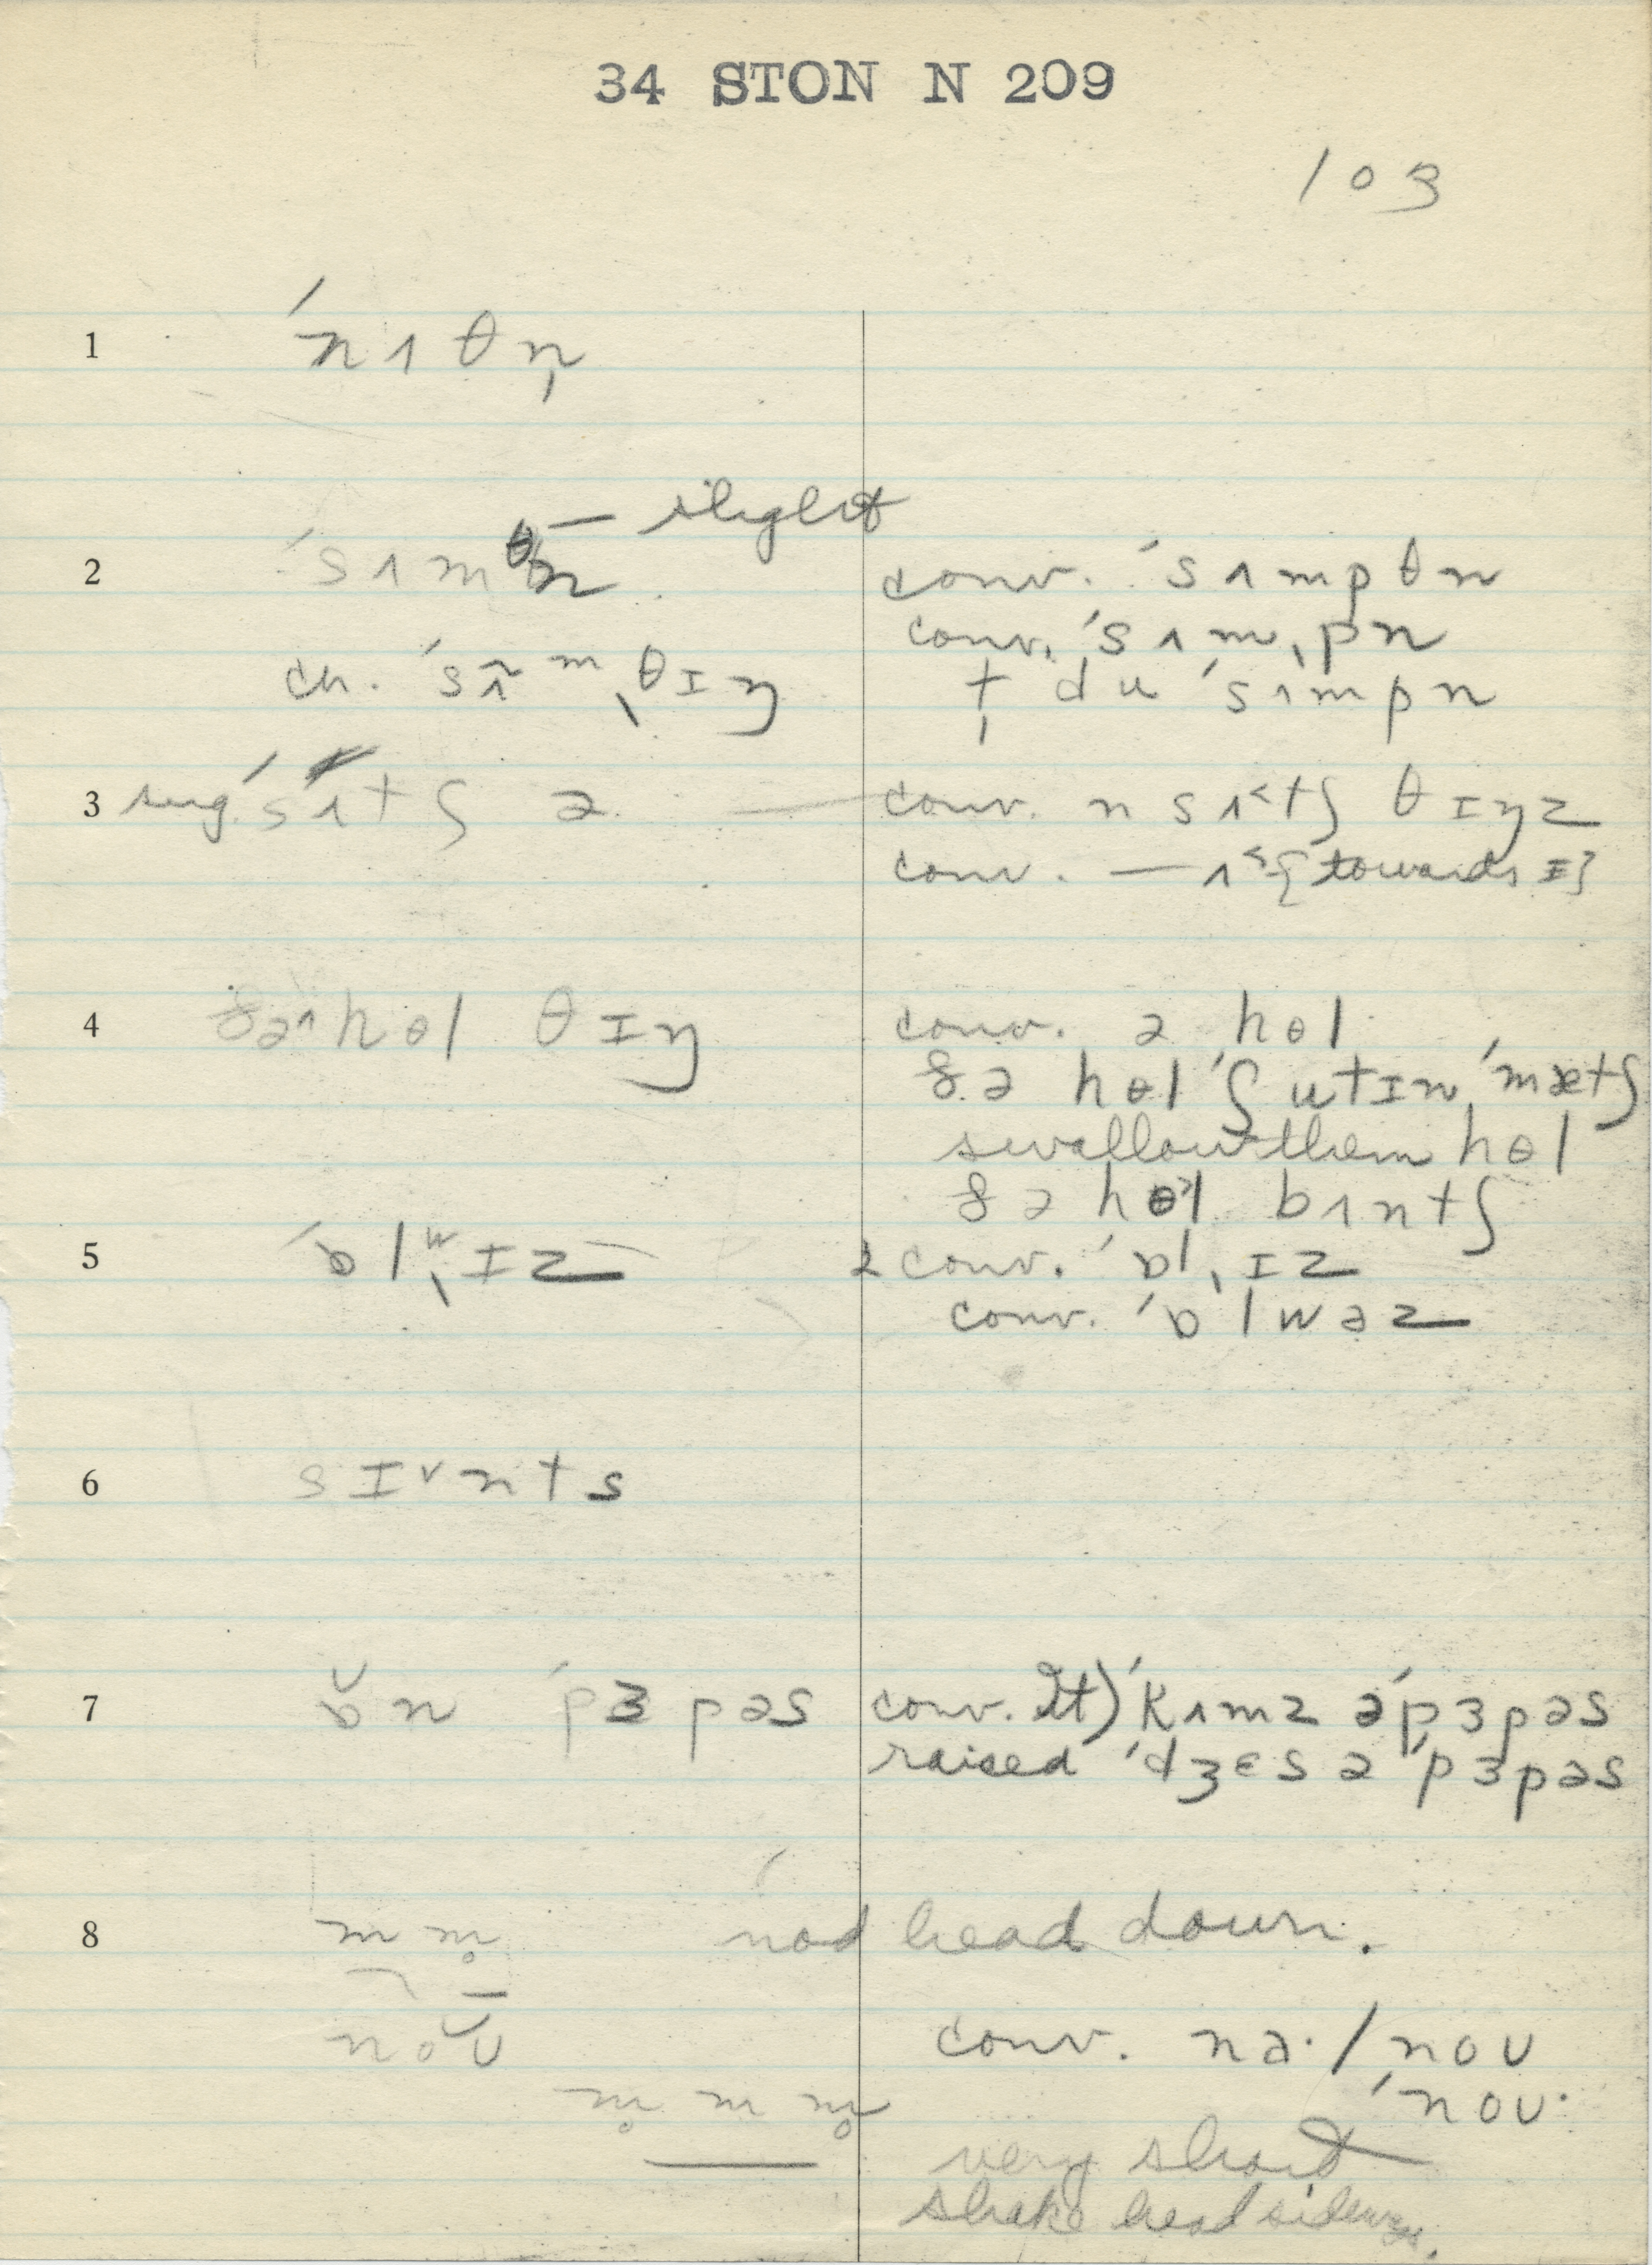 34 STON N 209
103
1 ˈnʌθn̩
— slight
2 ˈsʌmᶿn conv. ˈsʌmpθn
conv. ˈsʌm,pn
ch. ˈsʌ̃ᵐ,θɪŋ t̩ du ˈsʌmpn
3 sug. ˈsʌtʃ ə conv. n sʌ˂tʃ θɪŋz
conv. — ʌ˂ {towards ɪ}
4 ðə hɵl θɪŋ conv. ə hɵl
ðə hɵl ˈʃutɪn ˈmætʃ
swallow them hɵl
ðə hɵl bʌntʃ
5 ˈɒlʷ,ɪz 2 conv. ˈɒl,ɪz
conv. ˈɒlwəz
6 sɪᵛnts
7 ɒ̆n ˈpɜpəs conv. It) ˈkʌmz əˈpɜpəs
raised ˈdʒɛs əˈpɜpəs
8 m m̥ nod head down.
noʊ conv. nə· / noʊ
ˈnoʊ·
m̥ m m̥
very short
shake head sideways.